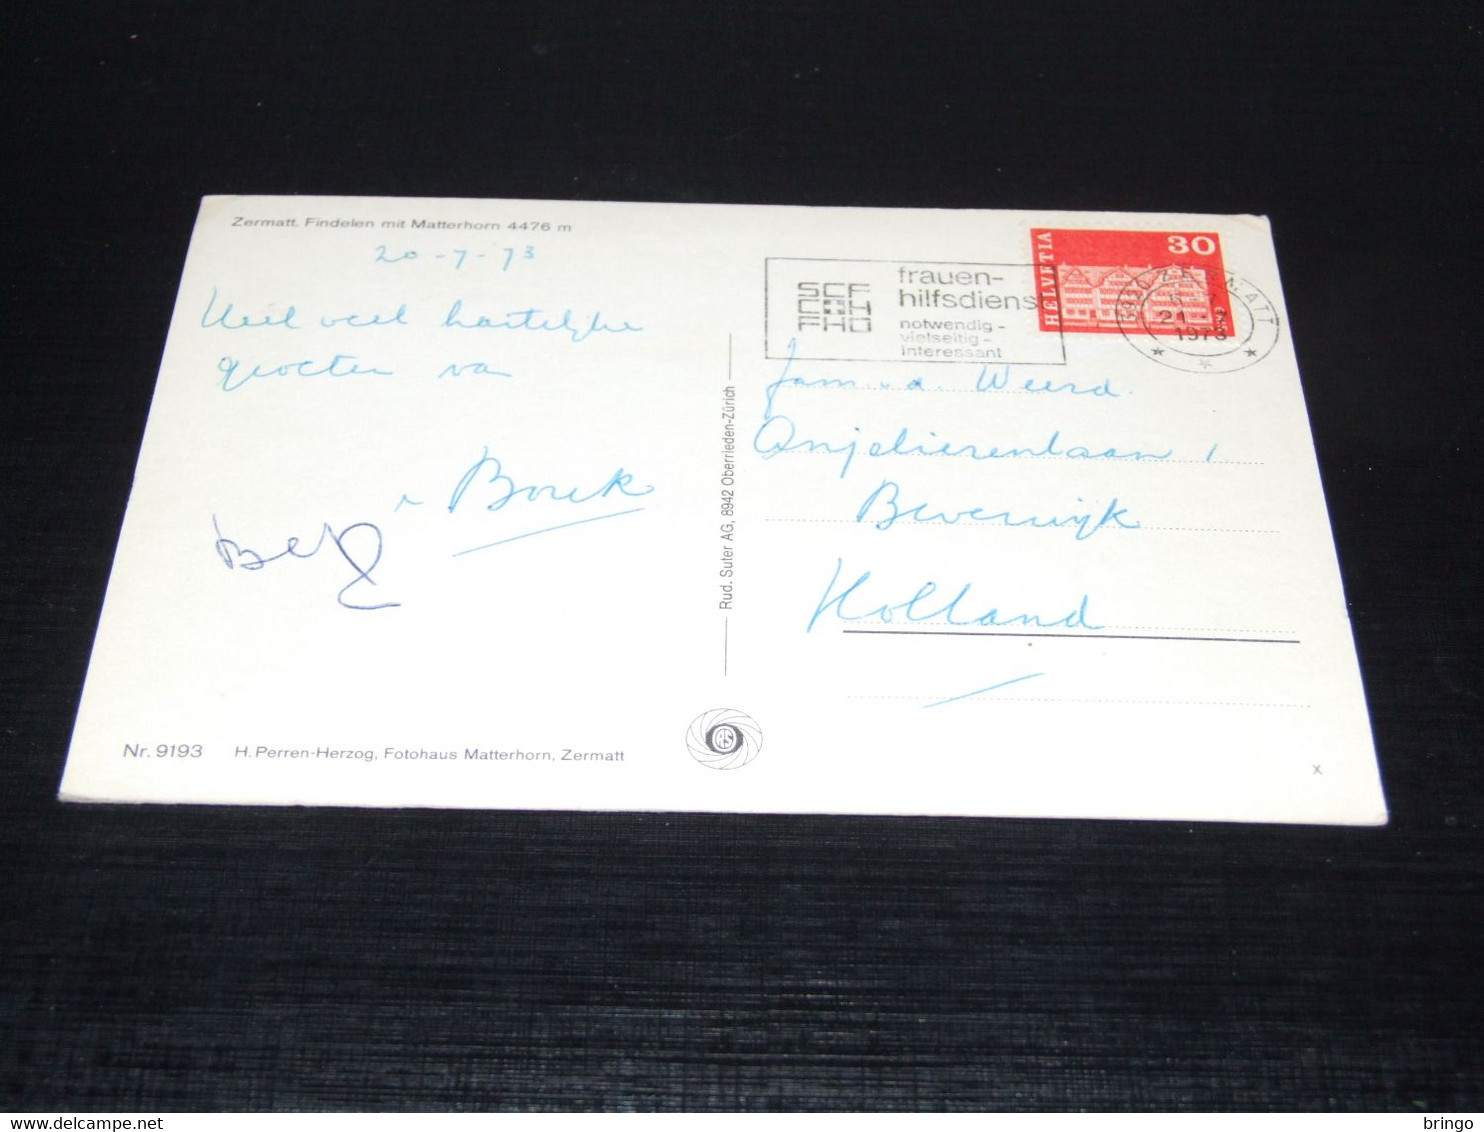 Zermatt. Findelen mit Matterhorn 4476 m
20-7-73
Veel veel hartelijke
groeten van
Bouk
frauen-
hilfsdienst
notwendig-
vielseitig-
interessant
HELVETIA
30
3920 ZERMATT
21.-7
1973
Fam. v.d. Weerd.
Anjelierenlaan 1
Beverwijk
Holland
Rud. Suter AG, 8942 Oberrieden-Zürich
Nr. 9193 H. Perren-Herzog, Fotohaus Matterhorn, Zermatt
x
bringo